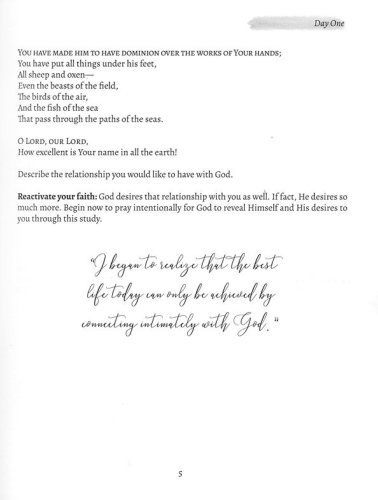 Day One
YOU HAVE MADE HIM TO HAVE DOMINION OVER THE WORKS OF YOUR HANDS;
You have put all things under his feet,
All sheep and oxen—
Even the beasts of the field,
The birds of the air,
And the fish of the sea
That pass through the paths of the seas.
O LORD, OUR LORD,
How excellent is Your name in all the earth!
Describe the relationship you would like to have with God.
Reactivate your faith: God desires that relationship with you as well. If fact, He desires so
much more. Begin now to pray intentionally for God to reveal Himself and His desires to
you through this study.
"I began to realize that the best
life today can only be achieved by
connecting intimately with God."
5